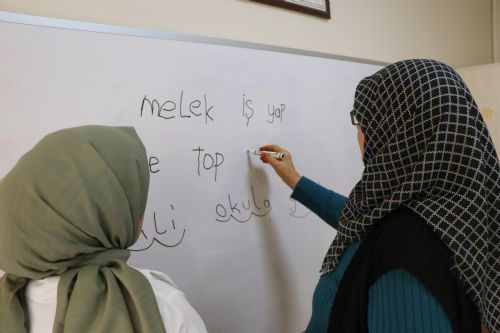 melek iş yap
e top
ili okula